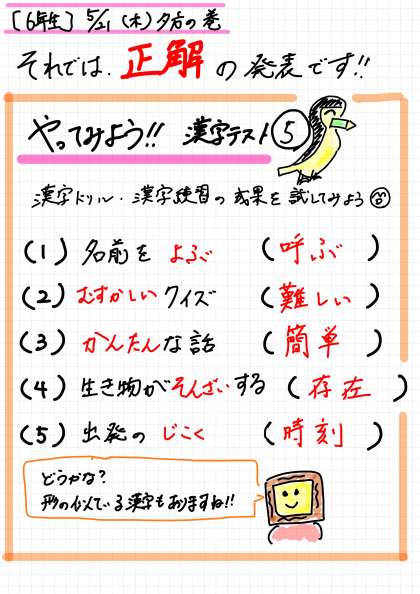 [6年生] 5/21 (木) 夕方の巻
それでは、正解の発表です!!
やってみよう!! 漢字テスト⑤
漢字ドリル・漢字練習の成果を試してみよう
(1) 名前を よぶ (呼ぶ)
(2) むずかしい クイズ (難しい)
(3) かんたんな話 (簡単)
(4) 生き物がそんざいする (存在)
(5) 出発の じこく (時刻)
どうかな?
形の似ている漢字もありますね!!